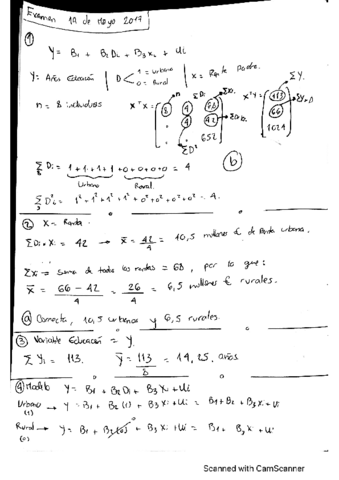 Examen 19 de Mayo 2017
①
Y = B1 + B2 Di + B3 Xi + Ui
Y = Años Educación | D 1 = urbano 0 = Rural | X = Renta Padre.
n = 8 individuos
X'X = 8 4 68 4 42 652
n ΣDi ΣDiXi ΣD²
X'Y = 113 66 1021
ΣY. ΣY·D
Σ Di = 1+1+1+1+0+0+0+0 = 4
Urbano Rural.
Σ Di² = 1²+1²+1²+1²+0²+0²+0²+0² = 4.
ⓑ
② X = Renta
ΣDi·Xi = 42 → X̄ = 42/4 = 10,5 millones € de Renta urbana.
ΣXi = suma de todas las rentas = 68, por lo que:
X̄ = 66 - 42 / 4 = 26/4 = 6,5 millones € rurales.
ⓐ Correcta, 10,5 urbanos y 6,5 rurales.
③ Variable Educación = Y.
ΣYi = 113. Ȳ = 113/8 = 14,25 años
④ Modelo Y = B1 + B2 Di + B3 Xi + Ui
Urbano (1) → Y = B1 + B2 (1) + B3 Xi + Ui = B1 + B2 + B3 Xi + Ui
Rural (0) → Y = B1 + B2 (0) + B3 Xi + Ui = B1 + B3 Xi + Ui
Scanned with CamScanner